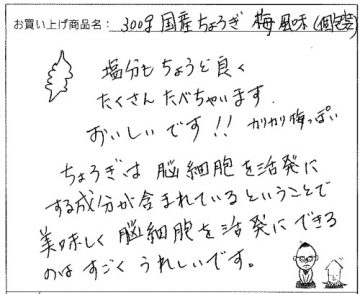 お買い上げ商品名: 300g 国産ちょろぎ 梅風味(個包装)
塩分もちょうど良く
たくさんたべちゃいます.
おいしいです!! カリカリ梅っぽい
ちょろぎは脳細胞を活発に
する成分が含まれているということで
美味しく脳細胞を活発にできる
のはすごくうれしいです。